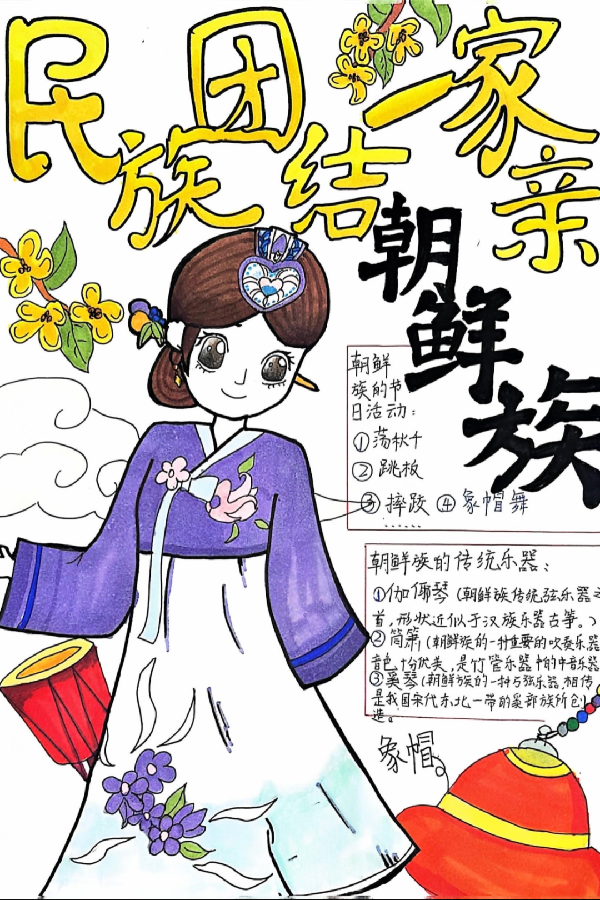 民族团结一家亲
朝鲜族
朝鲜
族的节
日活动：
①荡秋千
②跳板
③摔跤 ④象帽舞
……
朝鲜族的传统乐器：
①伽倻琴（朝鲜族传统弦乐器之
首，形状近似于汉族乐器古筝。）
②筒箫（朝鲜族的一种重要的吹奏乐器
音色十分优美，是竹管乐器中的中音乐器
③奚琴（朝鲜族的一种弓弦乐器，相传，
是我国宋代东北一带的奚部族所创
造。
象帽。